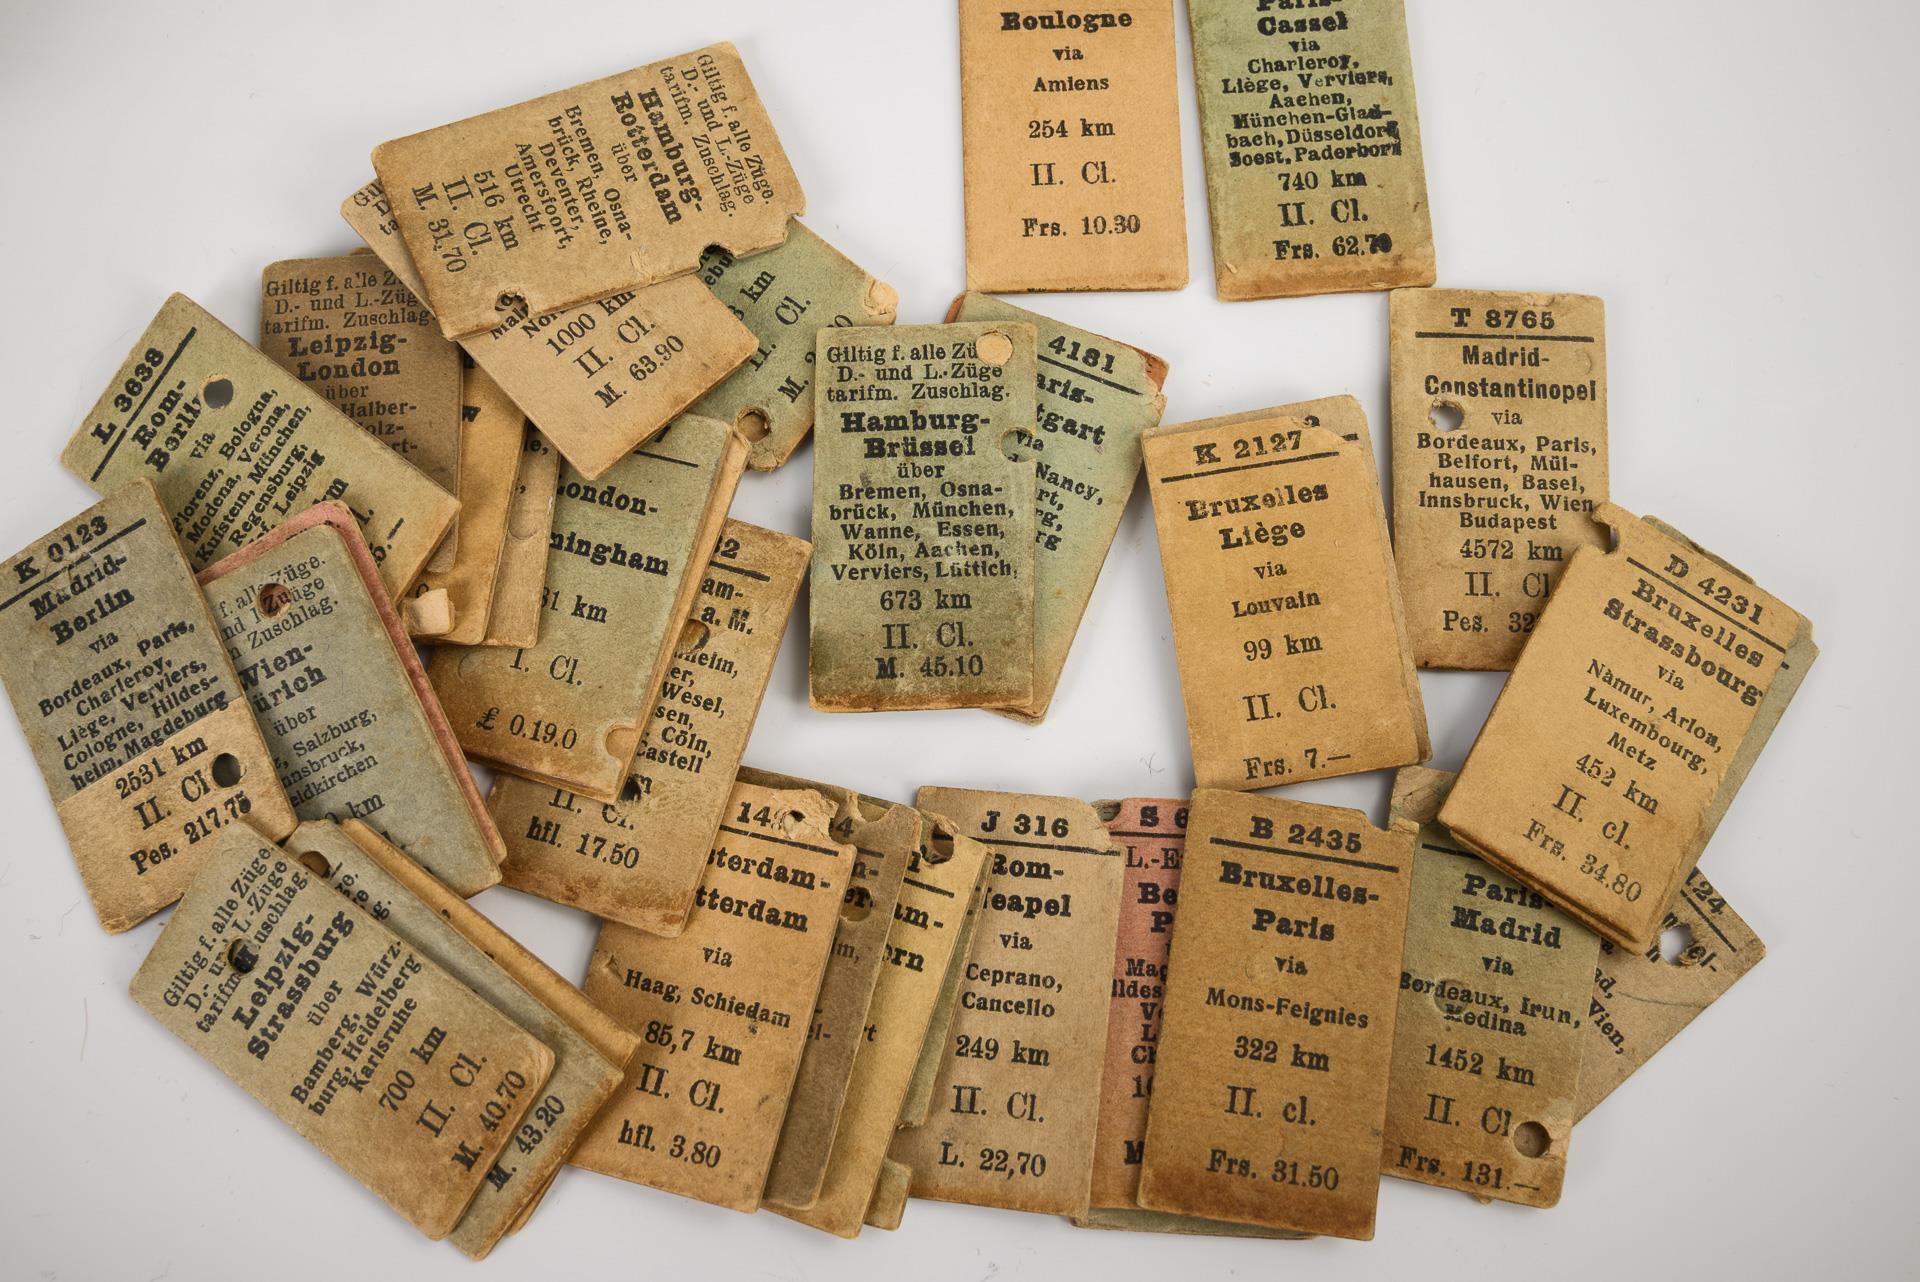 Boulogne
via
Amiens
254 km
II. Cl.
Frs. 10.30
Paris-
Cassel
via
Charleroy,
Liège, Verviers,
Aachen,
München-Glad-
bach, Düsseldorf
Soest, Paderborn
740 km
II. Cl.
Frs. 62.70
Giltig f. alle Züge.
D.- und L.-Züge
tarifm. Zuschlag.
Hamburg-
Rotterdam
über
Bremen, Osna-
brück, Rheine,
Deventer,
Amersfoort,
Utrecht
516 km
II. Cl.
M. 31.70
1000 km
II. Cl.
M. 63.90
km
II. Cl.
M.
Giltig f. alle
D.- und L.-Züg
tarifm. Zuschlag
Leipzig-
London
über
Halber-
L 3638
Rom-
Berlin
via
Florenz, Bologna,
Modena, Verona,
Kufstein, München,
Regensburg,
Leipzig
K 0123
Madrid-
Berlin
via
Bordeaux, Paris,
Charleroy,
Liège, Verviers,
Cologne, Hildes-
heim, Magdeburg
2531 km
II. Cl
Pes. 217.75
f. alle Züge.
nd L Züge
Zuschlag.
Wien-
ürich
über
Salzburg,
nnsbruck,
eldkirchen
km
London-
mingham
31 km
I. Cl.
£ 0.19.0
am-
a. M.
heim,
Wesel,
sen,
Cöln,
Castell
II. Cl.
hfl. 17.50
Giltig f. alle Zü
D.- und L.-Züge
tarifm. Zuschlag.
Hamburg-
Brüssel
über
Bremen, Osna-
brück, München,
Wanne, Essen,
Köln, Aachen,
Verviers, Lüttich,
673 km
II. Cl.
M. 45.10
4181
aris-
tgart
via
Nancy,
rt,
rg,
rg
K 2127
Bruxelles
Liège
via
Louvain
99 km
II. Cl.
Frs. 7.—
T 8765
Madrid-
Constantinopel
via
Bordeaux, Paris,
Belfort, Mül-
hausen, Basel,
Innsbruck, Wien
Budapest
4572 km
II. Cl
Pes. 32
D 4231
Bruxelles
Strassbourg
via
Nàmur, Arlon,
Luxembourg,
Metz
452 km
II. cl.
Frs. 34.80
Giltig f. alle Züge
D.- un L.-Züge
tarifm uschlag.
Leipzig-
Strassburg
über
Bamberg, Würz-
burg, Heidelberg
Karlsruhe
700 km
II. Cl.
M. 40.70
M. 43.20
14
sterdam-
tterdam
via
Haag, Schiedam
85,7 km
II. Cl.
hfl. 3.80
J 316
Rom-
Neapel
via
Ceprano,
Cancello
249 km
II. Cl.
L. 22,70
S 6
L.-E
Be
P
Mag
ldes
V
L
Ch
M
B 2435
Bruxelles-
Paris
via
Mons-Feignies
322 km
II. cl.
Frs. 31.50
Paris-
Madrid
via
Bordeaux, Irun,
Medina
1452 km
II. Cl
Frs. 131.—
.24
el-
d,
Wien,